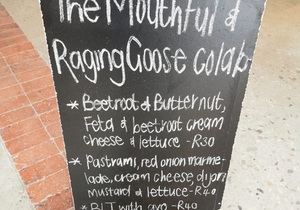 The Mouthful &
Raging Goose colab
* Beetroot & Butternut,
Feta & beetroot cream
cheese & lettuce - R30
* Pastrami, red onion marme-
lade, cream cheese, dijon
mustard & lettuce - R40
* BLT with avo - R40